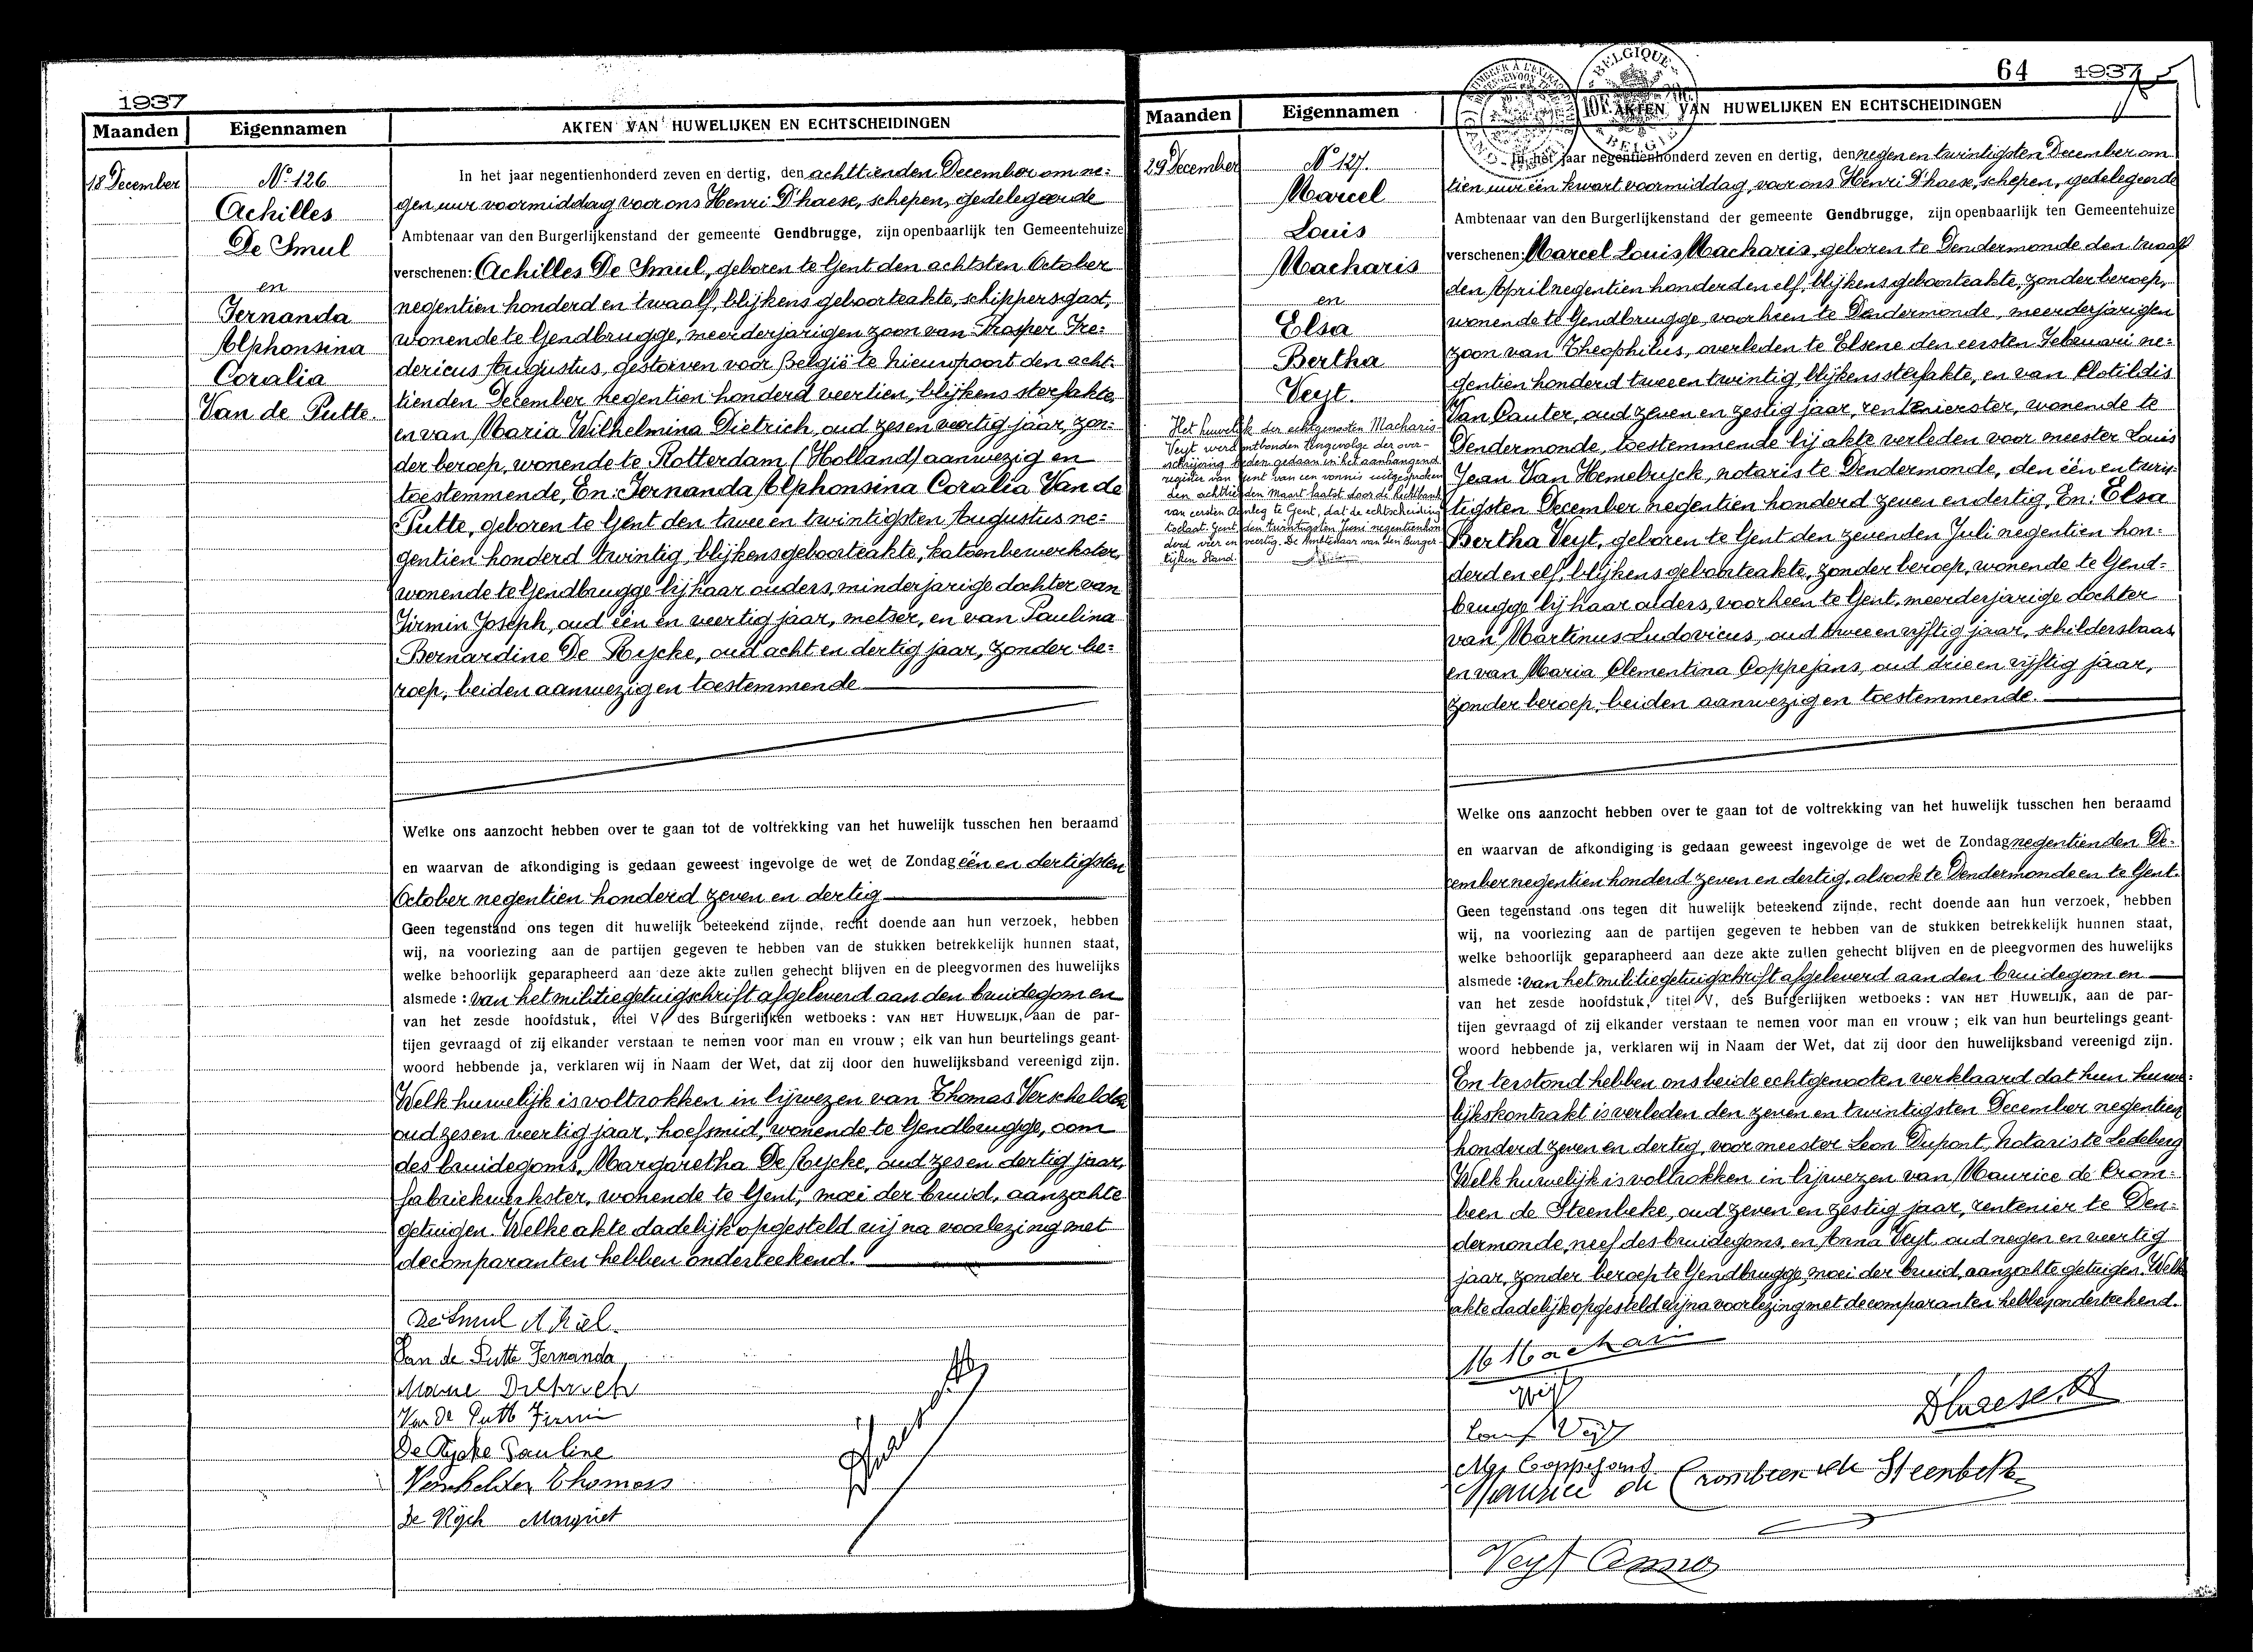 1937
Maanden Eigennamen AKTEN VAN HUWELIJKEN EN ECHTSCHEIDINGEN
18 December
No 126
Achilles
De Smul
en
Fernanda
Alphonsina
Coralia
Van de Putte.
In het jaar negentienhonderd zeven en dertig, den achttienden December om ne=
gen uur voormiddag voor ons Henri D'haese, schepen, gedelegeerde
Ambtenaar van den Burgerlijkenstand der gemeente Gendbrugge, zijn openbaarlijk ten Gemeentehuize
verschenen: Achilles De Smul, geboren te Gent den achtsten October
negentien honderd en twaalf, blijkens geboorteakte, schippersgast,
wonende te Gendbrugge, meerderjarigen zoon van Prosper Fre=
dericus Augustus, gestorven voor België te Nieuwpoort den acht-
tienden December negentien honderd veertien, blijkens sterfakte,
en van Maria Wilhelmina Dietrich, oud zes en veertig jaar, zon=
der beroep, wonende te Rotterdam (Holland) aanwezig en
toestemmende, En: Fernanda Alphonsina Coralia Van de
Putte, geboren te Gent den twee en twintigsten Augustus ne=
gentien honderd twintig, blijkens geboorteakte, katoenbewerkster,
wonende te Gendbrugge bij haar ouders, minderjarige dochter van
Firmin Joseph, oud één en veertig jaar, metser, en van Paulina
Bernardine De Rycke, oud acht en dertig jaar, zonder be=
roep, beiden aanwezig en toestemmende
Welke ons aanzocht hebben over te gaan tot de voltrekking van het huwelijk tusschen hen beraamd
en waarvan de afkondiging is gedaan geweest ingevolge de wet de Zondag één en dertigsten
October negentien honderd zeven en dertig
Geen tegenstand ons tegen dit huwelijk beteekend zijnde, recht doende aan hun verzoek, hebben
wij, na voorlezing aan de partijen gegeven te hebben van de stukken betrekkelijk hunnen staat,
welke behoorlijk geparapheerd aan deze akte zullen gehecht blijven en de pleegvormen des huwelijks
alsmede: van het militiegetuigschrift afgeleverd aan den bruidegom en
van het zesde hoofdstuk, titel V, des Burgerlijken wetboeks: VAN HET HUWELIJK, aan de par-
tijen gevraagd of zij elkander verstaan te nemen voor man en vrouw; elk van hun beurtelings geant-
woord hebbende ja, verklaren wij in Naam der Wet, dat zij door den huwelijksband vereenigd zijn.
Welk huwelijk is voltrokken in bijwezen van Thomas Verschelden
oud zes en veertig jaar, hoefsmid, wonende te Gendbrugge, oom
des bruidegoms, Margaretha De Rycke, oud zes en dertig jaar,
fabriekwerkster, wonende te Gent, moei der bruid, aanzochte
getuigen. Welke akte dadelijk opgesteld wij na voorlezing met
de comparanten hebben onderteekend.
De Smul Achiel.
Van de Putte Fernanda
Marie Dietrich
Van De Putte Firmin
De Rycke Pauline
Verschelden Thomas
De Rÿck Margriet
64 1937
Maanden Eigennamen AKTEN VAN HUWELIJKEN EN ECHTSCHEIDINGEN
BELGIQUE
BELGIË
29 December
No 127.
Marcel
Louis
Macharis
en
Elsa
Bertha
Veyt.
Het huwelijk der echtgenooten Macharis-
Veyt werd ontbonden tengevolge der over-
schrijving heden gedaan in het aanhangend
register van Gent van een vonnis uitgesproken
den achttienden Maart laatst door de Rechtbank
van eersten Aanleg te Gent, dat de echtscheiding
toelaat. Gent, den twintigsten Juni negentienhon
derd vier en veertig. De Ambtenaar van den Burger-
lijken Stand.
In het jaar negentienhonderd zeven en dertig, den negen en twintigsten December om
tien uur één kwart voormiddag, voor ons Henri D'haese, schepen, gedelegeerde
Ambtenaar van den Burgerlijkenstand der gemeente Gendbrugge, zijn openbaarlijk ten Gemeentehuize
verschenen: Marcel Louis Macharis, geboren te Dendermonde den twaalf
den April negentien honderd en elf, blijkens geboorteakte, zonder beroep,
wonende te Gendbrugge, voorheen te Dendermonde, meerderjarigen
zoon van Theophilus, overleden te Elsene den eersten Februari ne=
gentien honderd twee en twintig, blijkens sterfakte, en van Clotildis
Van Cauter, oud zeven en zestig jaar, rentenierster, wonende te
Dendermonde, toestemmende bij akte verleden voor meester Louis
Jean Van Hemelryck, notaris te Dendermonde, den één en twin-
tigsten December negentien honderd zeven en dertig, En: Elsa
Bertha Veyt, geboren te Gent den zevenden Juli negentien hon=
derd en elf, blijkens geboorteakte, zonder beroep, wonende te Gend=
brugge bij haar ouders, voorheen te Gent, meerderjarige dochter
van Martinus Ludovicus, oud twee en vijftig jaar, schildersbaas,
en van Maria Clementina Coppejans, oud drie en vijftig jaar,
zonder beroep, beiden aanwezig en toestemmende.
Welke ons aanzocht hebben over te gaan tot de voltrekking van het huwelijk tusschen hen beraamd
en waarvan de afkondiging is gedaan geweest ingevolge de wet de Zondag negentienden De-
cember negentien honderd zeven en dertig, alsook te Dendermonde en te Gent.
Geen tegenstand ons tegen dit huwelijk beteekend zijnde, recht doende aan hun verzoek, hebben
wij, na voorlezing aan de partijen gegeven te hebben van de stukken betrekkelijk hunnen staat,
welke behoorlijk geparapheerd aan deze akte zullen gehecht blijven en de pleegvormen des huwelijks
alsmede: van het militiegetuigschrift afgeleverd aan den bruidegom en
van het zesde hoofdstuk, titel V, des Burgerlijken wetboeks: VAN HET HUWELIJK, aan de par-
tijen gevraagd of zij elkander verstaan te nemen voor man en vrouw; elk van hun beurtelings geant-
woord hebbende ja, verklaren wij in Naam der Wet, dat zij door den huwelijksband vereenigd zijn.
En terstond hebben ons beide echtgenooten verklaard dat hun huwe=
lijkskontrakt is verleden den zeven en twintigsten December negentien
honderd zeven en dertig, voor meester Leon Dupont, notaris te Ledeberg
Welk huwelijk is voltrokken in bijwezen van Maurice de Crom=
been de Steenbeke, oud zeven en zestig jaar, rentenier te Den=
dermonde, neef des bruidegoms, en Anna Veyt, oud negen en veertig
jaar, zonder beroep te Gendbrugge, moei der bruid, aanzochte getuigen. Welke
akte dadelijk opgesteld wij na voorlezing met de comparanten hebben onderteekend.
M Machari
Veyt
D'haese H
Louis Veyt
Mar Coppejans
Maurice de Crombeen de Steenbeke
Veyt Anna